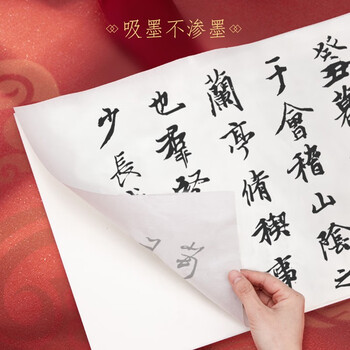 吸墨不渗墨
癸丑暮
于會稽山陰之
蘭亭脩禊事
也羣
少長